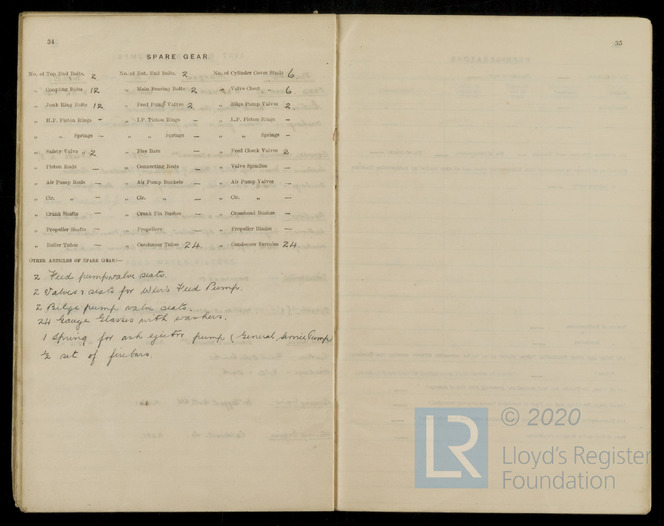 34
SPARE GEAR.
No. of Top End Bolts, 2 No. of Bot. End Bolts, 2 No. of Cylinder Cover Studs 6
„ Coupling Bolts 12 „ Main Bearing Bolts 2 „ Valve Chest „ 6
„ Junk Ring Bolts 12 „ Feed Pump Valves 2 „ Bilge Pump Valves 2
„ H.P. Piston Rings — „ I.P. Piston Rings — „ L.P. Piston Rings —
„ „ Springs — „ „ Springs — „ „ Springs —
„ Safety Valve „ 2 „ Fire Bars — „ Feed Check Valves 2
„ Piston Rods — „ Connecting Rods — „ Valve Spindles —
„ Air Pump Rods — „ Air Pump Buckets — „ Air Pump Valves —
„ Cir. „ — „ Cir. „ — „ Cir. „ —
„ Crank Shafts — „ Crank Pin Bushes — „ Crosshead Bushes —
„ Propeller Shafts — „ Propellers — „ Propeller Blades —
„ Boiler Tubes — „ Condenser Tubes 24 „ Condenser Ferrules 24
OTHER ARTICLES OF SPARE GEAR:—
2 Feed pump valve seats.
2 Valves & seats for Weir's Feed Pump.
2 Bilge pump valve seats.
24 Gauge Glasses with washers.
1 Spring for ash ejector pump (General Service Pump)
½ set of firebars.
35
© 2020
LR
Lloyd's Register
Foundation